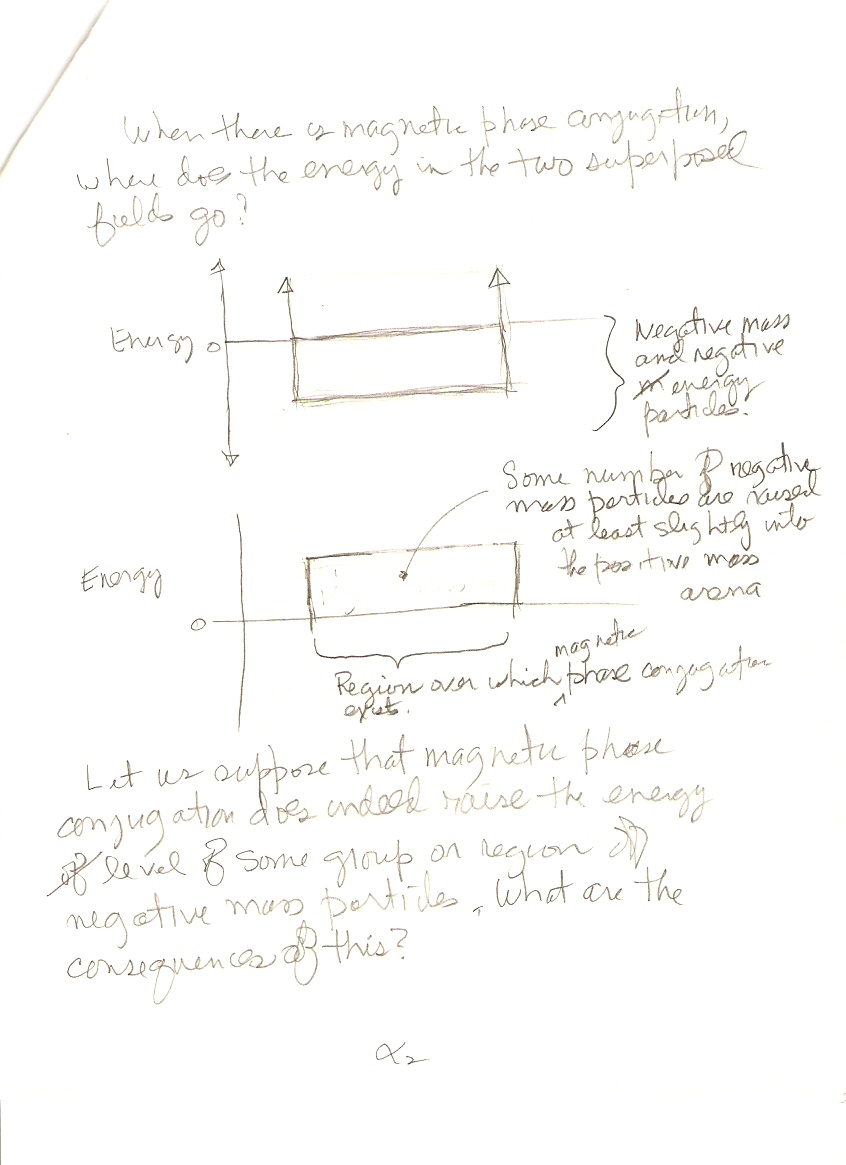 When there is magnetic phase conjugation,
where does the energy in the two superposed
fields go?
Energy 0
Negative mass
and negative
energy
particles.
Some number of negative
mass particles are raised
at least slightly into
the positive mass
arena
Energy
0
magnetic
Region over which ^ phase conjugation
exists.
Let us suppose that magnetic phase
conjugation does indeed raise the energy
level of some group or region of
negative mass particles. What are the
consequences of this?
α2